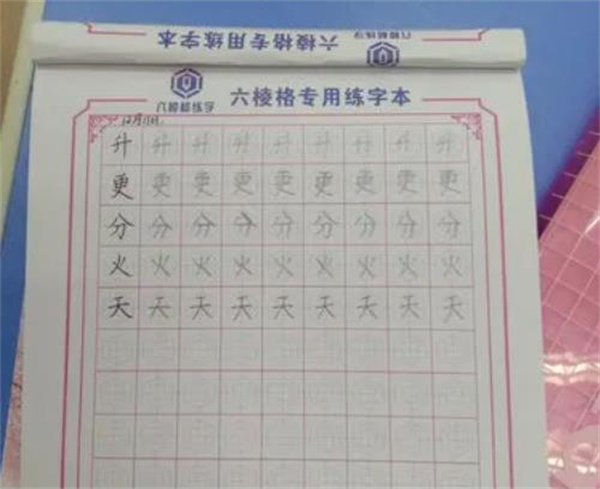 六棱格练字 六棱格专用练字本
六棱格练字 六棱格专用练字本
升 升 升 升 升 升 升 升 升
更 更 更 更 更 更 更 更 更
分 分 分 分 分 分 分 分 分
火 火 火 火 火 火 火 火 火
天 天 天 天 天 天 天 天 天